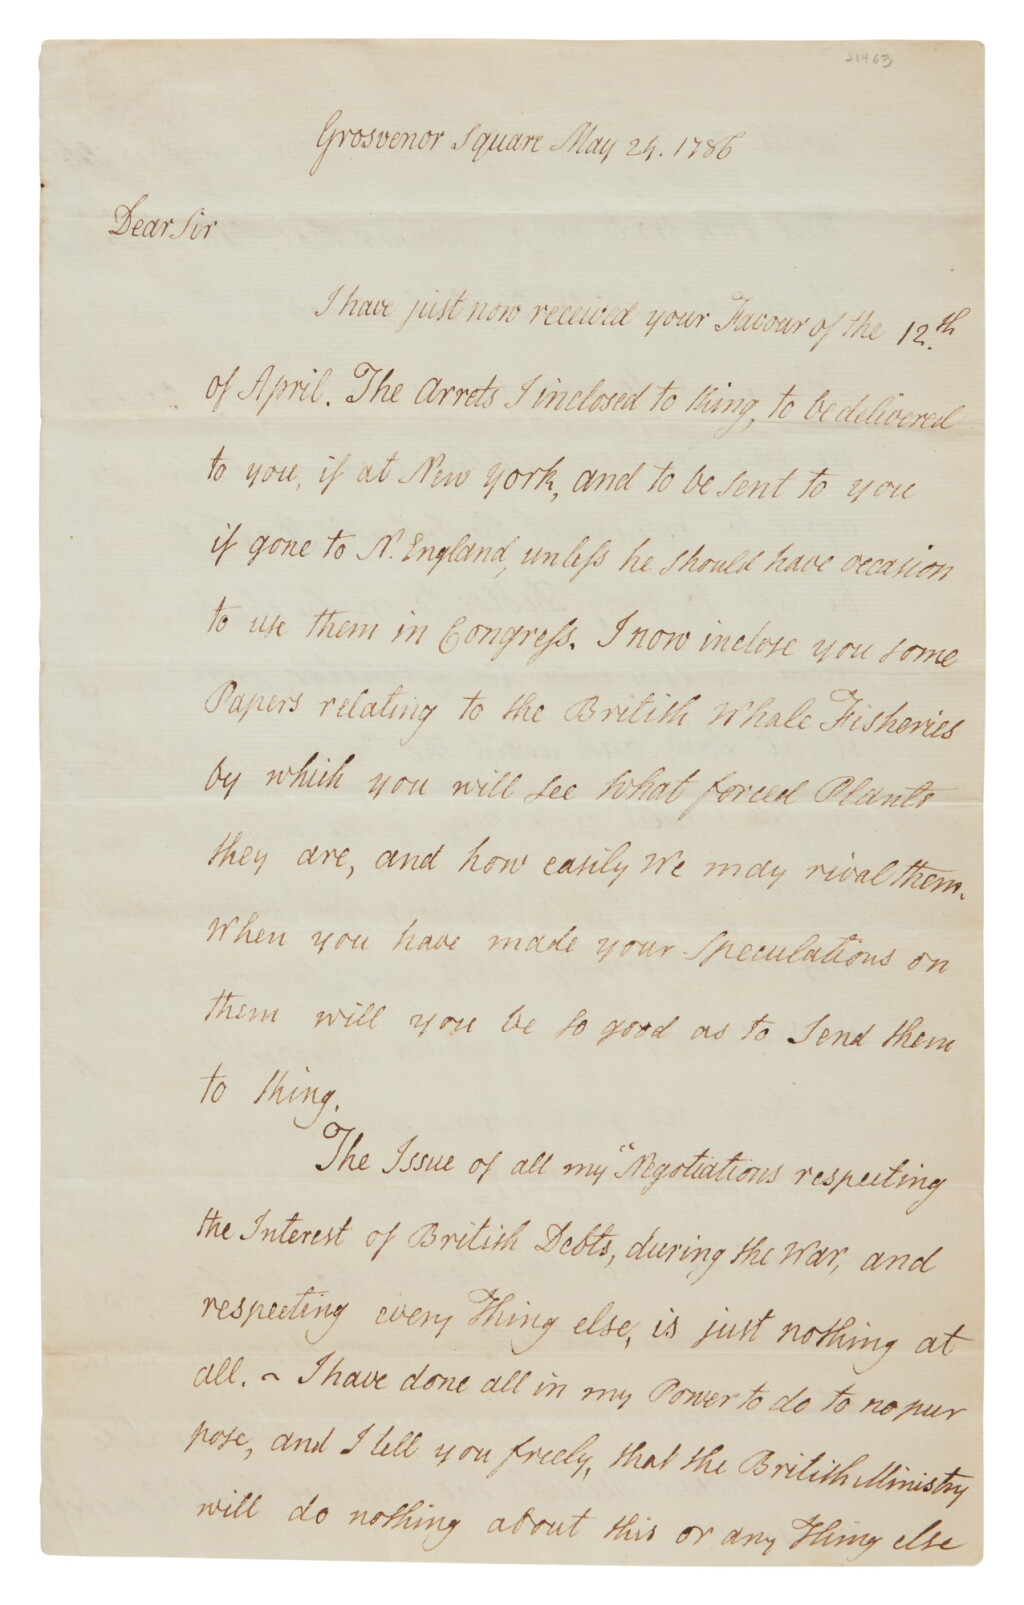 21463
Grosvenor Square May 24. 1786
Dear Sir
I have just now received your Favour of the 12.th
of April. The Arrets I inclosed to King, to be delivered
to you, if at New York, and to be sent to you
if gone to N. England, unless he should have occasion
to use them in Congress. I now inclose you some
Papers relating to the British Whale Fisheries
by which you will see what forced Plants
they are, and how easily We may rival them.
When you have made your Speculations on
them will you be so good as to send them
to King.
The Issue of all my "Negotiations respecting
the Interest of British Debts, during the War, and
respecting every Thing else, is just nothing at
all. ~ I have done all in my Power to do to no pur
pose, and I tell you freely, that the British Ministry
will do nothing about this or any Thing else